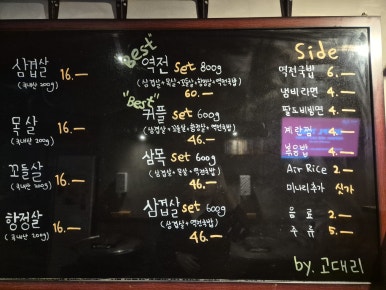 삼겹살 16.—
(국내산 200g)
목살 16.—
(국내산 200g)
꼬들살 16.—
(국내산 200g)
항정살 16.—
(국내산 200g)
"Best"
역전 set 800g
(삼겹살+목살+꼬들살+항정살+역전국밥)
60.—
"Best"
커플 set 600g
(삼겹살+꼬들살+항정살+역전국밥)
46.—
삼목 set 600g
(삼겹살+목살+역전국밥)
46.—
삼겹살 set 600g
(삼겹살+역전국밥)
46.—
Side
역전국밥 6.—
냄비라면 4.—
팔도비빔면 4.—
계란찜 4.—
볶음밥 4.—
Air Rice 2.—
미나리추가 싯가
음료 2.—
주류 5.—
by. 고대리